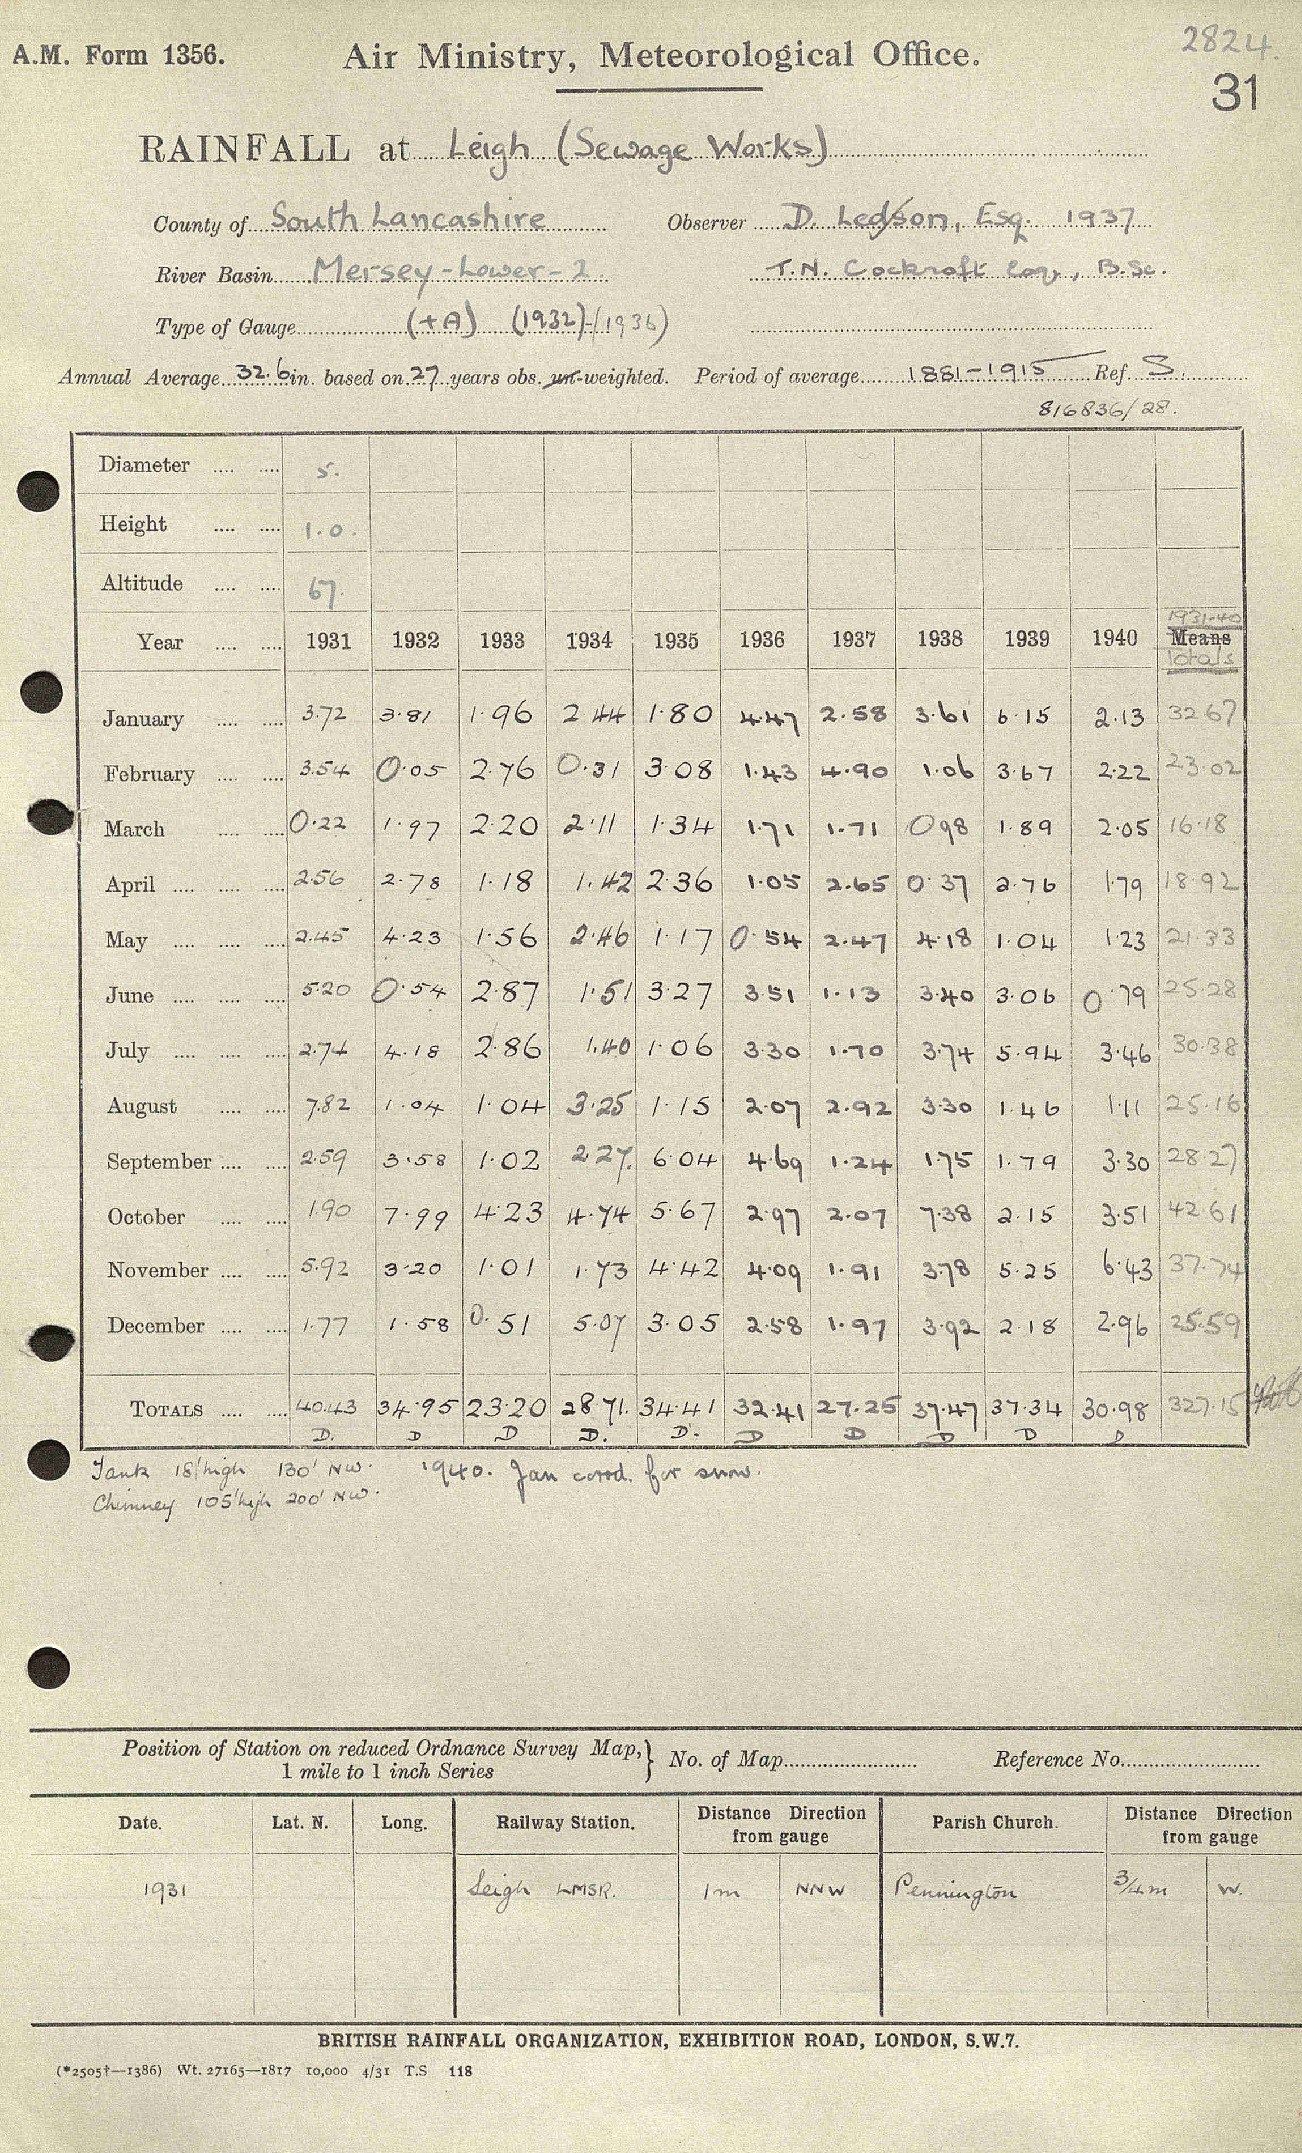 2824.
A.M. Form 1356. Air Ministry, Meteorological Office.
31
RAINFALL at Leigh (Sewage Works)
County of South Lancashire Observer D. Ledson, Esq. 1937
River Basin Mersey-Lower-2 T.N. Cockroft Esq., B.Sc.
Type of Gauge (+A) (1932)-(1936)
Annual Average 32.6 in. based on 27 years obs. un-weighted. Period of average 1881-1915 Ref. S.
816836/28.
Diameter 5.
Height 1.0.
Altitude 67.
1931-40
Year 1931 1932 1933 1934 1935 1936 1937 1938 1939 1940 Means
Totals
January 3.72 3.81 1.96 2.44 1.80 4.47 2.58 3.61 6.15 2.13 32.67
February 3.54 0.05 2.76 0.31 3.08 1.43 4.90 1.06 3.67 2.22 23.02
March 0.22 1.97 2.20 2.11 1.34 1.71 1.71 0.98 1.89 2.05 16.18
April 2.56 2.78 1.18 1.42 2.36 1.05 2.65 0.37 2.76 1.79 18.92
May 2.45 4.23 1.56 2.46 1.17 0.54 2.47 4.18 1.04 1.23 21.33
June 5.20 0.54 2.87 1.51 3.27 3.51 1.13 3.40 3.06 0.79 25.28
July 2.74 4.18 2.86 1.40 1.06 3.30 1.70 3.74 5.94 3.46 30.38
August 7.82 1.04 1.04 3.25 1.15 2.07 2.92 3.30 1.46 1.11 25.16
September 2.59 3.58 1.02 2.27 6.04 4.69 1.24 1.75 1.79 3.30 28.27
October 1.90 7.99 4.23 4.74 5.67 2.97 2.07 7.38 2.15 3.51 42.61
November 5.92 3.20 1.01 1.73 4.42 4.09 1.91 3.78 5.25 6.43 37.74
December 1.77 1.58 0.51 5.07 3.05 2.58 1.97 3.92 2.18 2.96 25.59
TOTALS 40.43 34.95 23.20 28.71 34.41 32.41 27.25 37.47 37.34 30.98 327.15
D. D D D. D. D D D D D
Tank 18' high 130' NW. 1940. Jan corrd. for snow.
Chimney 105' high 200' NW.
Position of Station on reduced Ordnance Survey Map, } No. of Map Reference No.
1 mile to 1 inch Series
Date. Lat. N. Long. Railway Station. Distance Direction from gauge Parish Church. Distance Direction from gauge
1931 Leigh LMSR. 1m NNW Pennington 3/4m W.
BRITISH RAINFALL ORGANIZATION, EXHIBITION ROAD, LONDON, S.W.7.
(*2505†—1386) Wt. 27165—1817 10,000 4/31 T.S 118